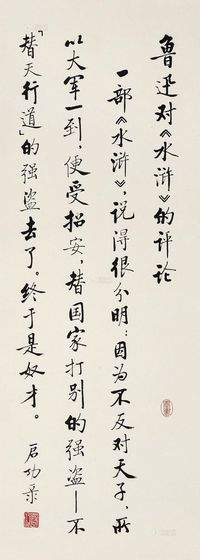 鲁迅对《水浒》的评论
一部《水浒》，说得很分明：因为不反对天子，所
以大军一到，便受招安，替国家打别的强盗——不
“替天行道”的强盗去了。终于是奴才。
启功录